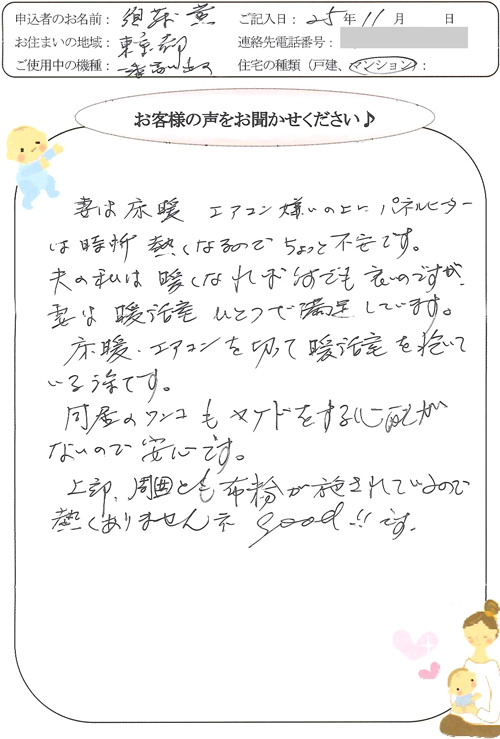 申込者のお名前： 薫 ご記入日：25年11月 日
お住まいの地域：東京都 連絡先電話番号：
ご使用中の機種： 住宅の種類（戸建、マンション）：
お客様の声をお聞かせください♪
妻は床暖 エアコン嫌いの上に パネルヒーター
は時折 熱くなるので ちょっと不安です。
夫の私は 暖くなれば 何でも 良いのですが、
妻は 暖話室 ひとつで満足しています。
床暖・エアコンを切って 暖話室 を抱いて
いる様です。
同居のワンコも ヤケドをする心配が
ないので 安心です。
上部、周囲とも 布粉が施されているので
熱くありませんネ good!!です。